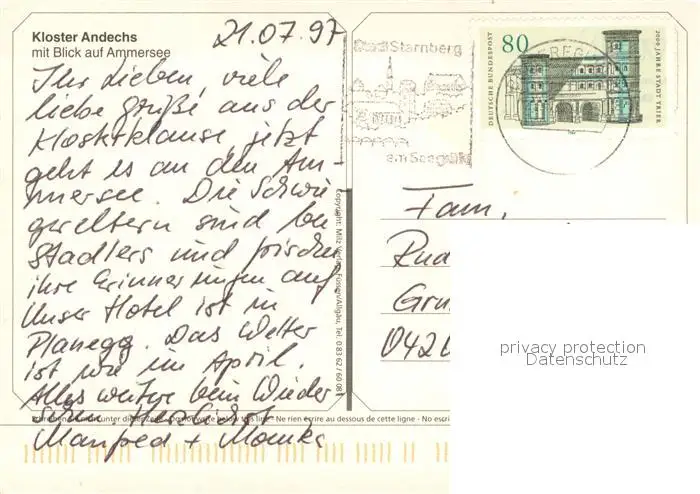 Kloster Andechs
mit Blick auf Ammersee
21.07.97
Ihr Lieben, viele
liebe Grüße aus der
Klosterklause, jetzt
geht es an den Am-
mersee. Die Schwie
gereltern sind bei
Stadlers und frischen
ihre Erinnerungen auf
Unser Hotel ist in
Planegg. Das Wetter
ist wie im April.
Alles weitere beim Wieder
sehn Herzlichst
Manfred + Monika
Copyright: Milz Verlag, Füssen/Allgäu, Tel. 0 83 62 / 60 08
unter dieser Zeile - Do not write below this line - Ne rien écrire au dessous de cette ligne - No escri
Stadt Starnberg
am See grüßt
80
DEUTSCHE BUNDESPOST
2000 JAHRE STADT TRIER
Fam.
Rud
Gru
042
privacy protection
Datenschutz